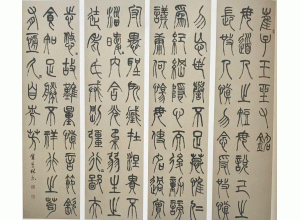 崔子玉座右銘
毋道人之短毋說己之
長施人慎勿念受施慎
勿忘世譽不足慕惟仁
為紀綱隱心而後動謗
議庸何傷毋使名過實
守愚聖所臧在涅貴不
淄曖曖內含光柔弱生之
徒老氏誡剛彊行行鄙夫
志悠悠故難量慎言節飲
食知足勝不祥行之苟
有恆久久自芬芳